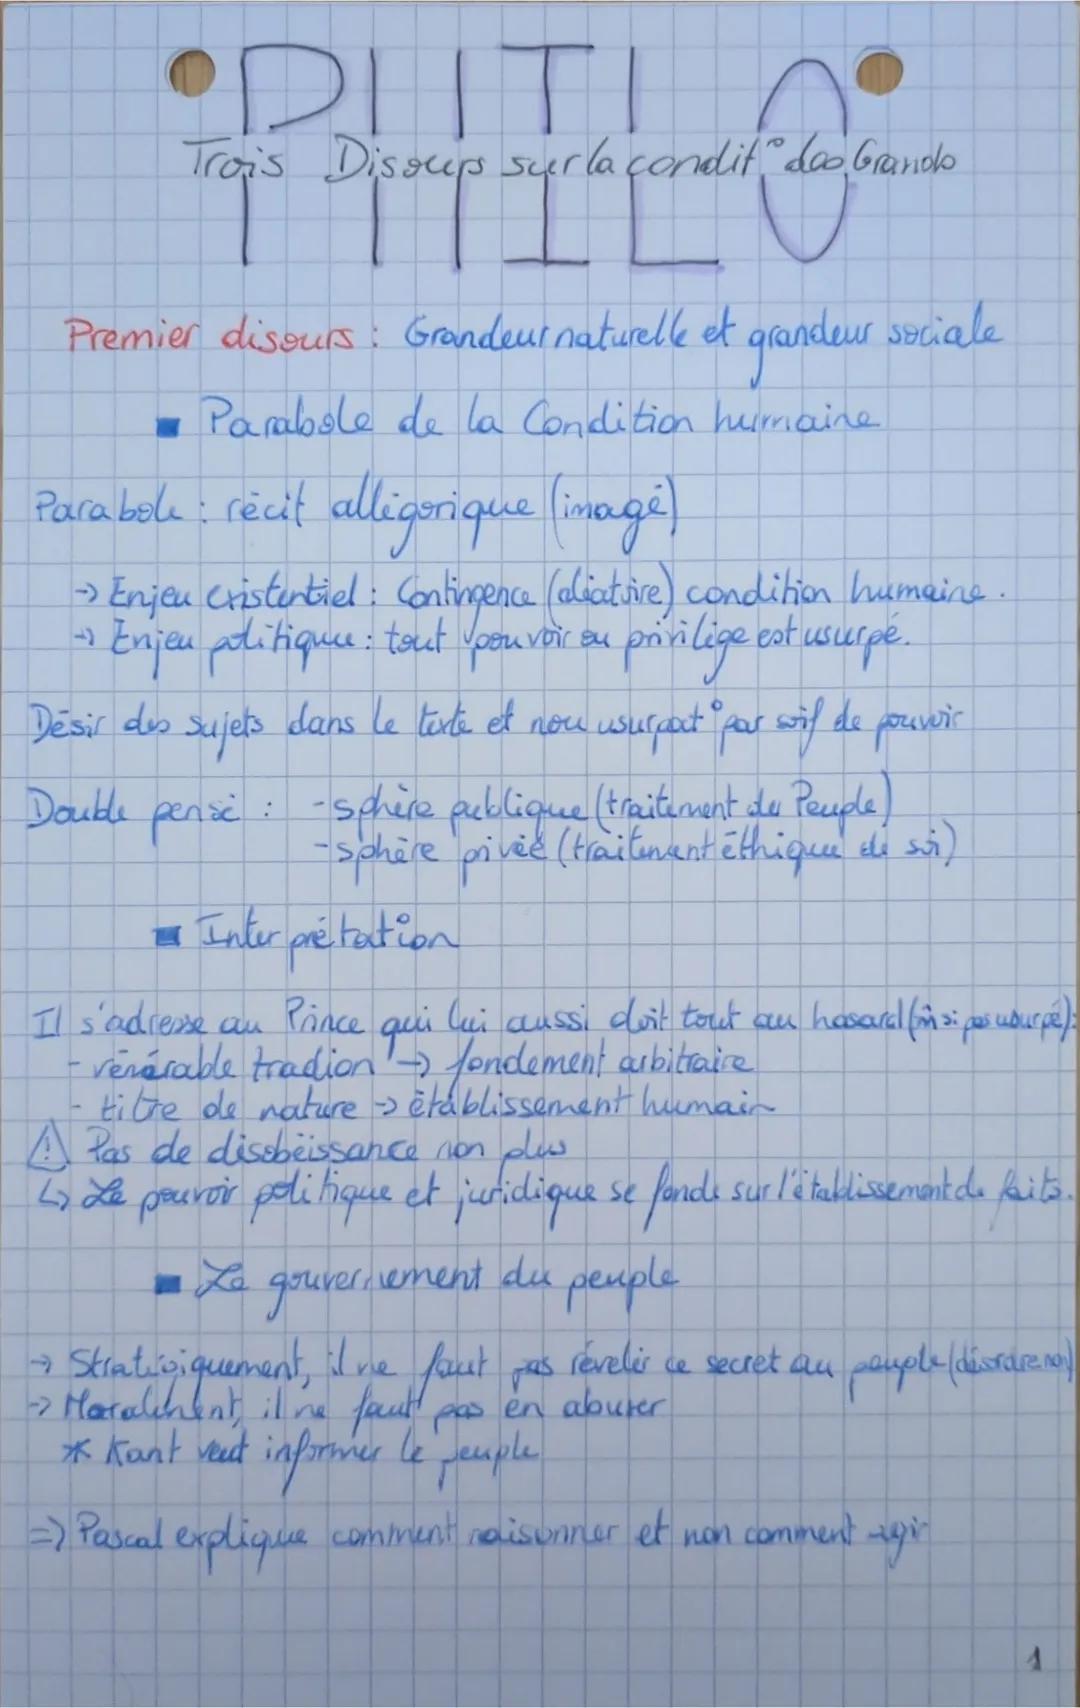 PHILO
Trois Discours sur la condit° des Grands
Premier discours : Grandeur naturelle et grandeur sociale
▪ Parabole de la Condition humaine
Parabole : récit alligorique (imagé)
-> Enjeu existentiel : Contingence (aléatoire) condition humaine.
-> Enjeu politique : tout pouvoir ou privilège est usurpé.
Désir des sujets dans le texte et non usurpat° par soif de pouvoir
Double pensé : - sphère publique (traitement du Peuple)
- sphère privée (traitement éthique de soi)
▪ Interprétation
Il s'adresse au Prince qui lui aussi doit tout au hasard (m si pas usurpé) :
- vénérable tradion -> fondement arbitraire
- titre de nature -> établissement humain
⚠ Pas de désobéissance non plus
↳ Le pouvoir politique et juridique se fonde sur l'établissement de faits.
▪ Le gouvernement du peuple
-> Stratégiquement, il ne faut pas révéler ce secret au peuple (désordre
-> Moralement, il ne faut pas en abuser
* Kant veut informer le peuple
=> Pascal explique comment raisonner et non comment agir
1